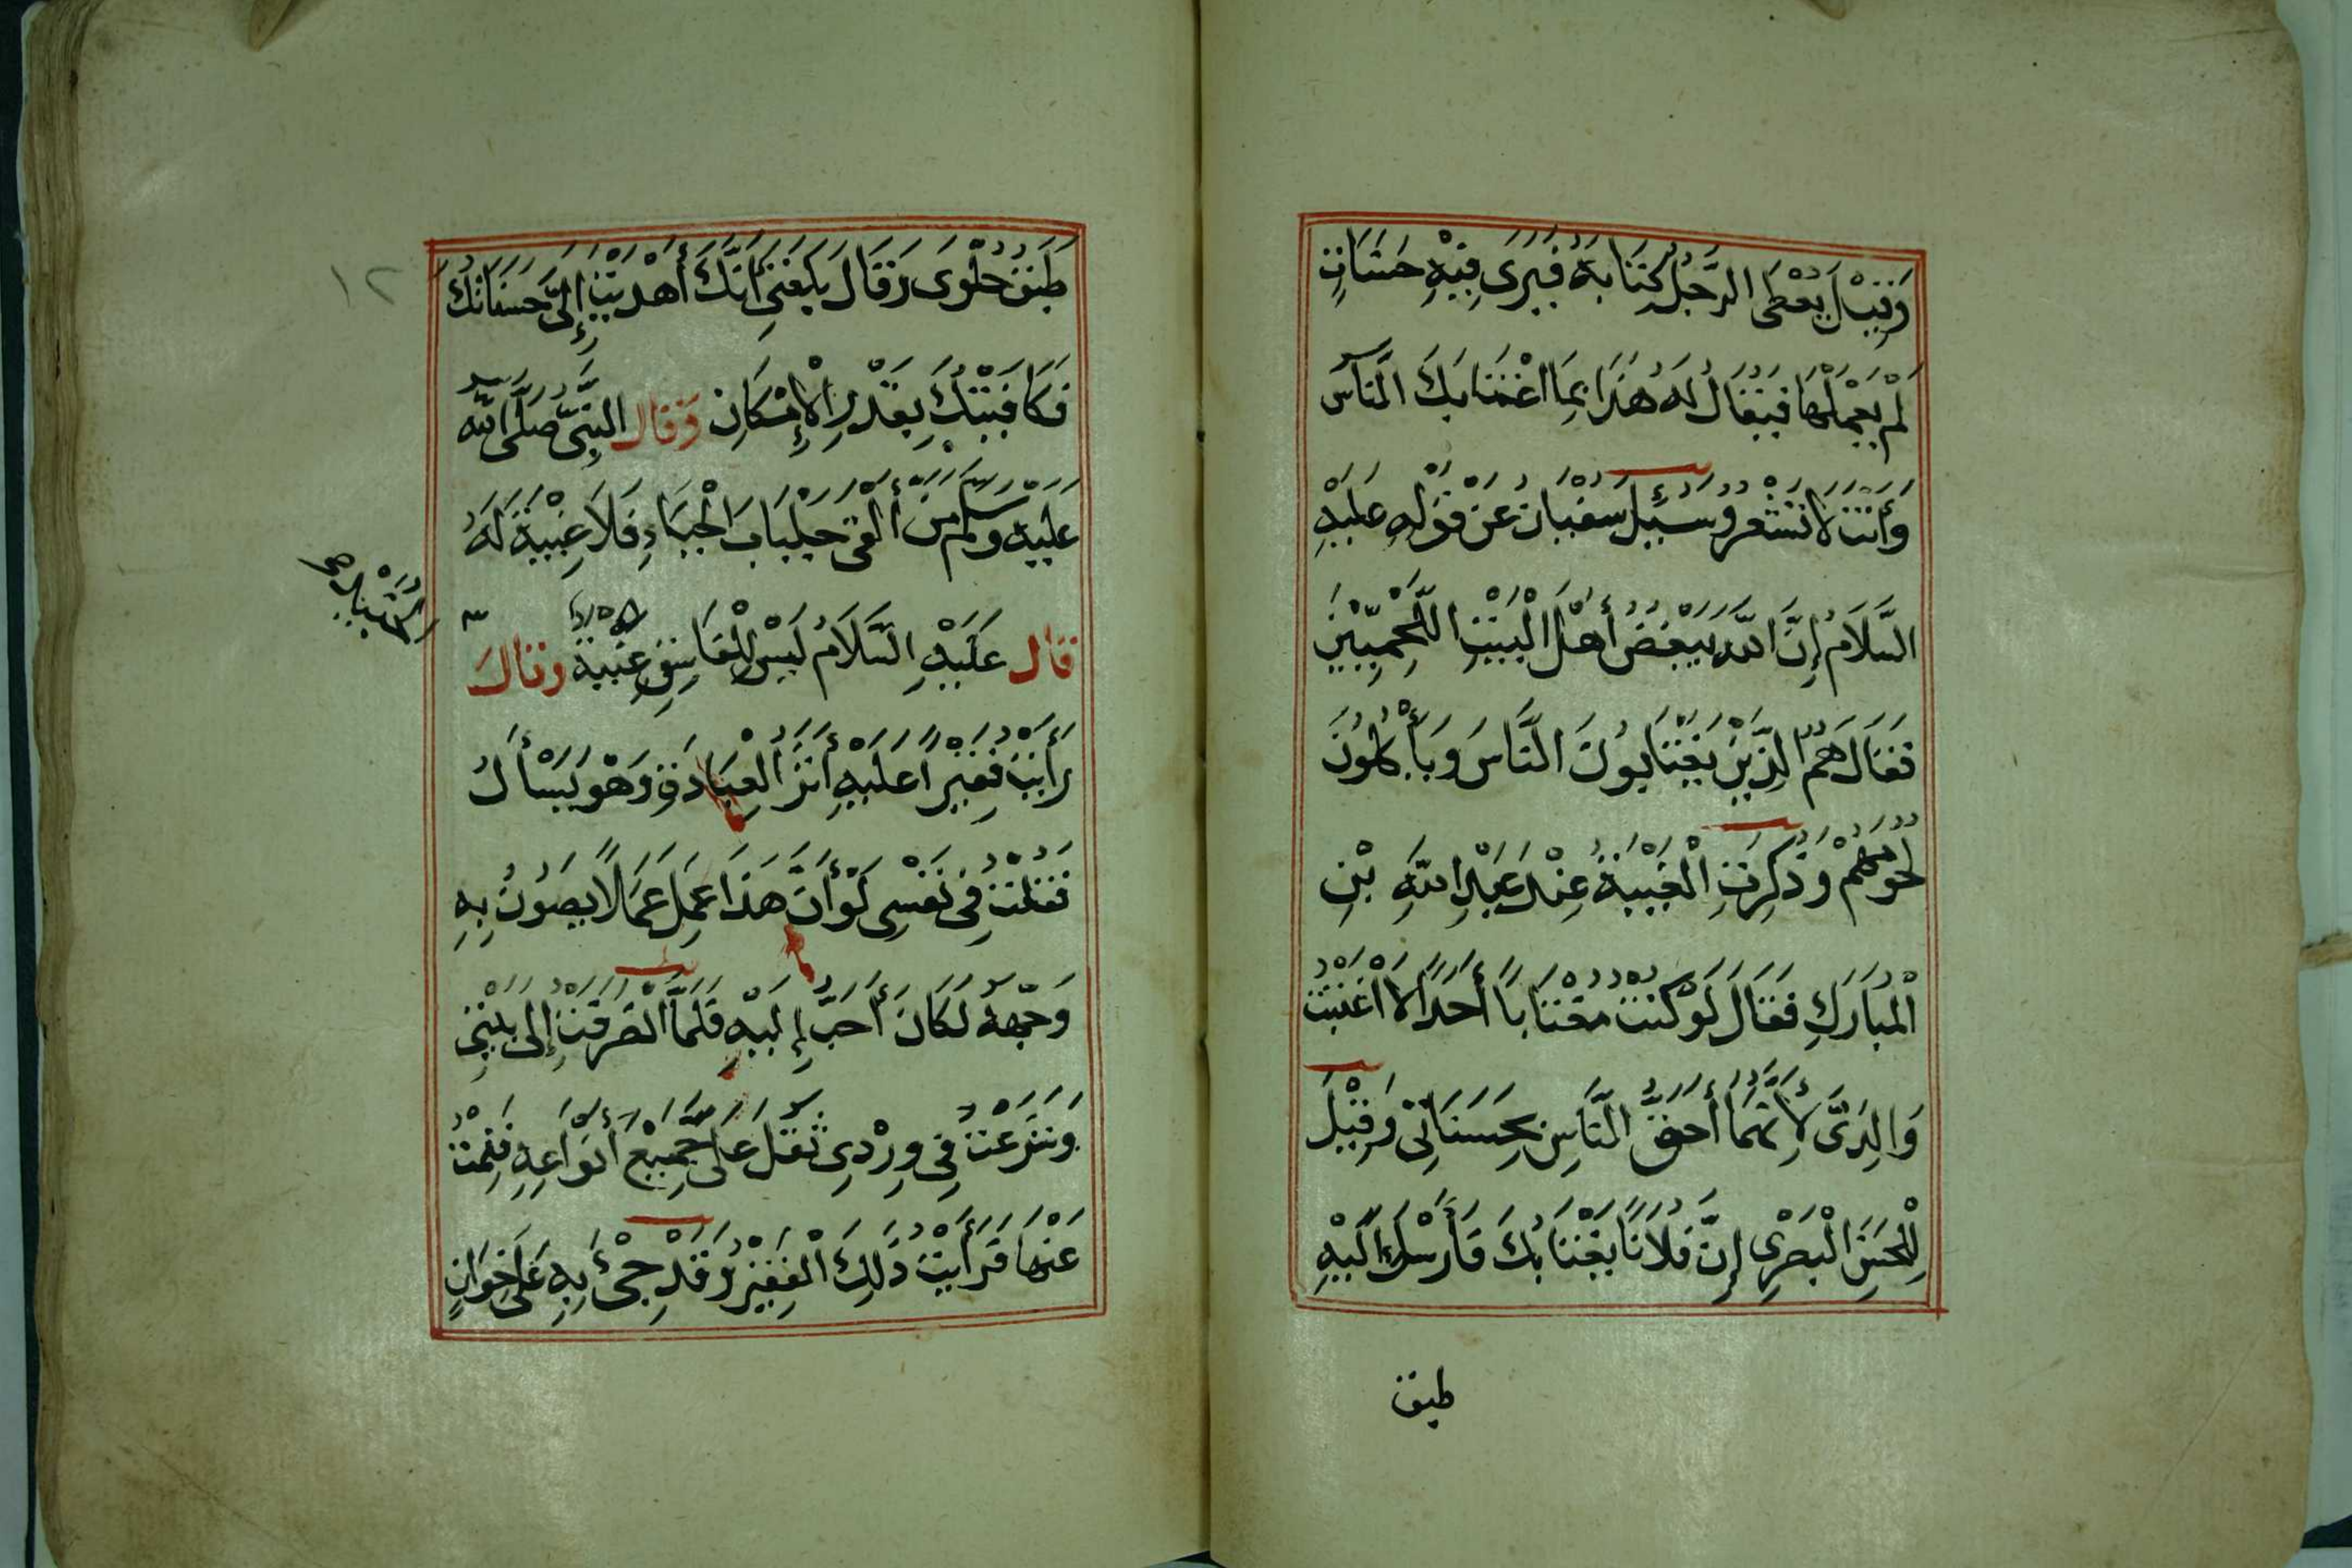 وَقِيْلَ يُعْطَى الرَّجُلُ كِتَابَهُ فَيَرَى فِيْهِ حَسَنَاتٍ
لَمْ يَعْمَلْهَا فَيُقَالُ لَهُ هٰذَا بِمَا اغْتَابَكَ النَّاسُ
وَأَنْتَ لَا تَشْعُرُ وَسُئِلَ سُفْيَانُ عَنْ قَوْلِهِ عَلَيْهِ
السَّلَامُ إِنَّ اللّٰهَ يُبْغِضُ أَهْلَ الْبَيْتِ اللَّحْمِيِّيْنَ
فَقَالَ هُمُ الَّذِيْنَ يَغْتَابُوْنَ النَّاسَ وَيَأْكُلُوْنَ
لُحُوْمَهُمْ وَذُكِرَتِ الْغِيْبَةُ عِنْدَ عَبْدِ اللّٰهِ بْنِ
الْمُبَارَكِ فَقَالَ لَوْ كُنْتُ مُغْتَابًا أَحَدًا لَاغْتَبْتُ
وَالِدَيَّ لِأَنَّهُمَا أَحَقُّ النَّاسِ بِحَسَنَاتِيْ وَقِيْلَ
لِلْحَسَنِ الْبَصْرِى إِنَّ فُلَانًا يَغْتَابُكَ فَأَرْسَلَ إِلَيْهِ
طبق
١٢
طَبَقَ حَلْوَى وَقَالَ بَلَغَنِى أَنَّكَ أَهْدَيْتَ إِلَىَّ حَسَنَاتَكَ
فَكَافَيْتُكَ بِقَدْرِ الْإِمْكَانِ وَقَالَ النَّبِىُّ صَلَّى اللّٰهُ
عَلَيْهِ وَسَلَّمَ مَنْ أَلْقَى جِلْبَابَ الْحَيَاءِ فَلَا غِيْبَةَ لَهُ
قَالَ عَلَيْهِ السَّلَامُ لَيْسَ لِلْفَاسِقِ غِيْبَةٌ وَقَالَ
رَأَيْتُ فَقِيْرًا عَلَيْهِ أَثَرُ الْعِبَادَةِ وَهُوَ يَسْأَلُ
فَقُلْتُ فِى نَفْسِى لَوْ أَنَّ هٰذَا عَمِلَ عَمَلًا يَصُوْنُ بِهِ
وَجْهَهُ لَكَانَ أَحَبَّ إِلَيْهِ فَلَمَّا انْصَرَفْتُ إِلَى بَيْتِى
وَشَرَعْتُ فِى وِرْدِى ثَقُلَ عَلَىَّ جَمِيْعُ أَنْوَاعِهِ فَنِمْتُ
عَنْهَا فَرَأَيْتُ ذٰلِكَ الْفَقِيْرَ وَقَدْ جِىْءَ بِهِ عَلَى خِوَانٍ